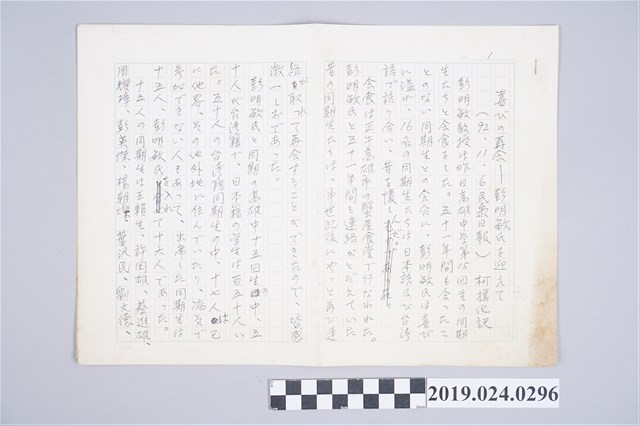 喜びの再会―彭明敏氏を迎えて
（92.11.6民衆日報） 柯旗化訳
彭明敏教授は昨日高雄中学第15回生の同期
生たちと会食をした。五十一年間も会ったこ
とのない同期生との会合に、彭明敏氏は喜び
に溢れ、16名の同期生たちは日本語及び台湾
語で語り合い、昔を懐しんだ。
会食は正午高雄市の蟳之屋食堂で行なわれた。
彭明敏氏と五十一年間も連絡がとだえていた
昔の同期生たちは、半世紀後にやっと再び連
絡が取れて再会することができたので、皆感
激一しおであった。
彭明敏氏と同期の高雄中十五回生の中、五
十人が台湾籍で、日本籍の学生は百五十人い
た。五十人の台湾籍同期生の中、十七人は已
に他界、その他外地に住んでいたり、病気で
参加できない人もあって、出席した同期生は
十五人、彭明敏氏を入れて十六人であった。
十五人の同期生は王頼生、許国雄、蔡進雄、
周耀璋、彭英傑、楊朝、葉沢民、劉大徳、
2019.024.0296